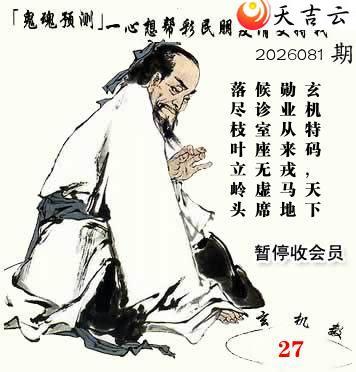 天吉云
「鬼魂预测」一心想帮彩民朋
2026081 期
玄机特码，天下
勋业从来戎马地
候诊室座无虚席
落尽枝叶立岭头
暂停收会员
玄机数
27